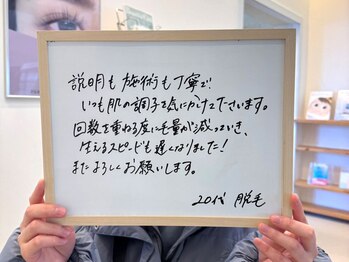 説明も施術も丁寧で
いつも肌の調子を気にかけて下さいます。
回数を重ねる度に毛量が減っていき、
生えるスピードも遅くなりました!
またよろしくお願いします。
20代 脱毛